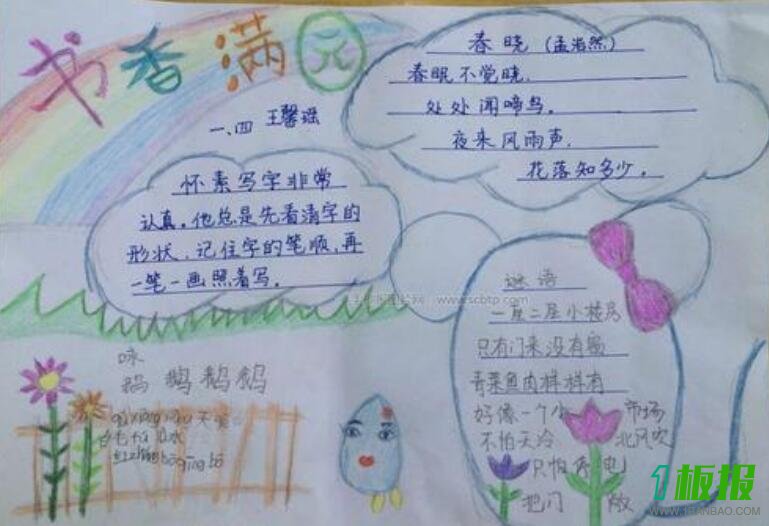 书香满园
一、四 王馨瑶
春晓 (孟浩然)
春眠不觉晓.
处处闻啼鸟。
夜来风雨声.
花落知多少。
怀素写字非常
认真。他总是先看清字的
形状,记住字的笔顺,再
一笔一画照着写。
谜语
一层二层小楼房
只有门来没有窗
青菜鱼肉样样有
好像一个小 市场
不怕天冷 北风吹
只怕停电
把门 敞
咏
鹅 鹅鹅鹅
qū xiàng xiàng 天
白毛 水
hóng zhǎng bō qīng bō
www.scbtp.com
1板报
WWW.1BANBAO.COM